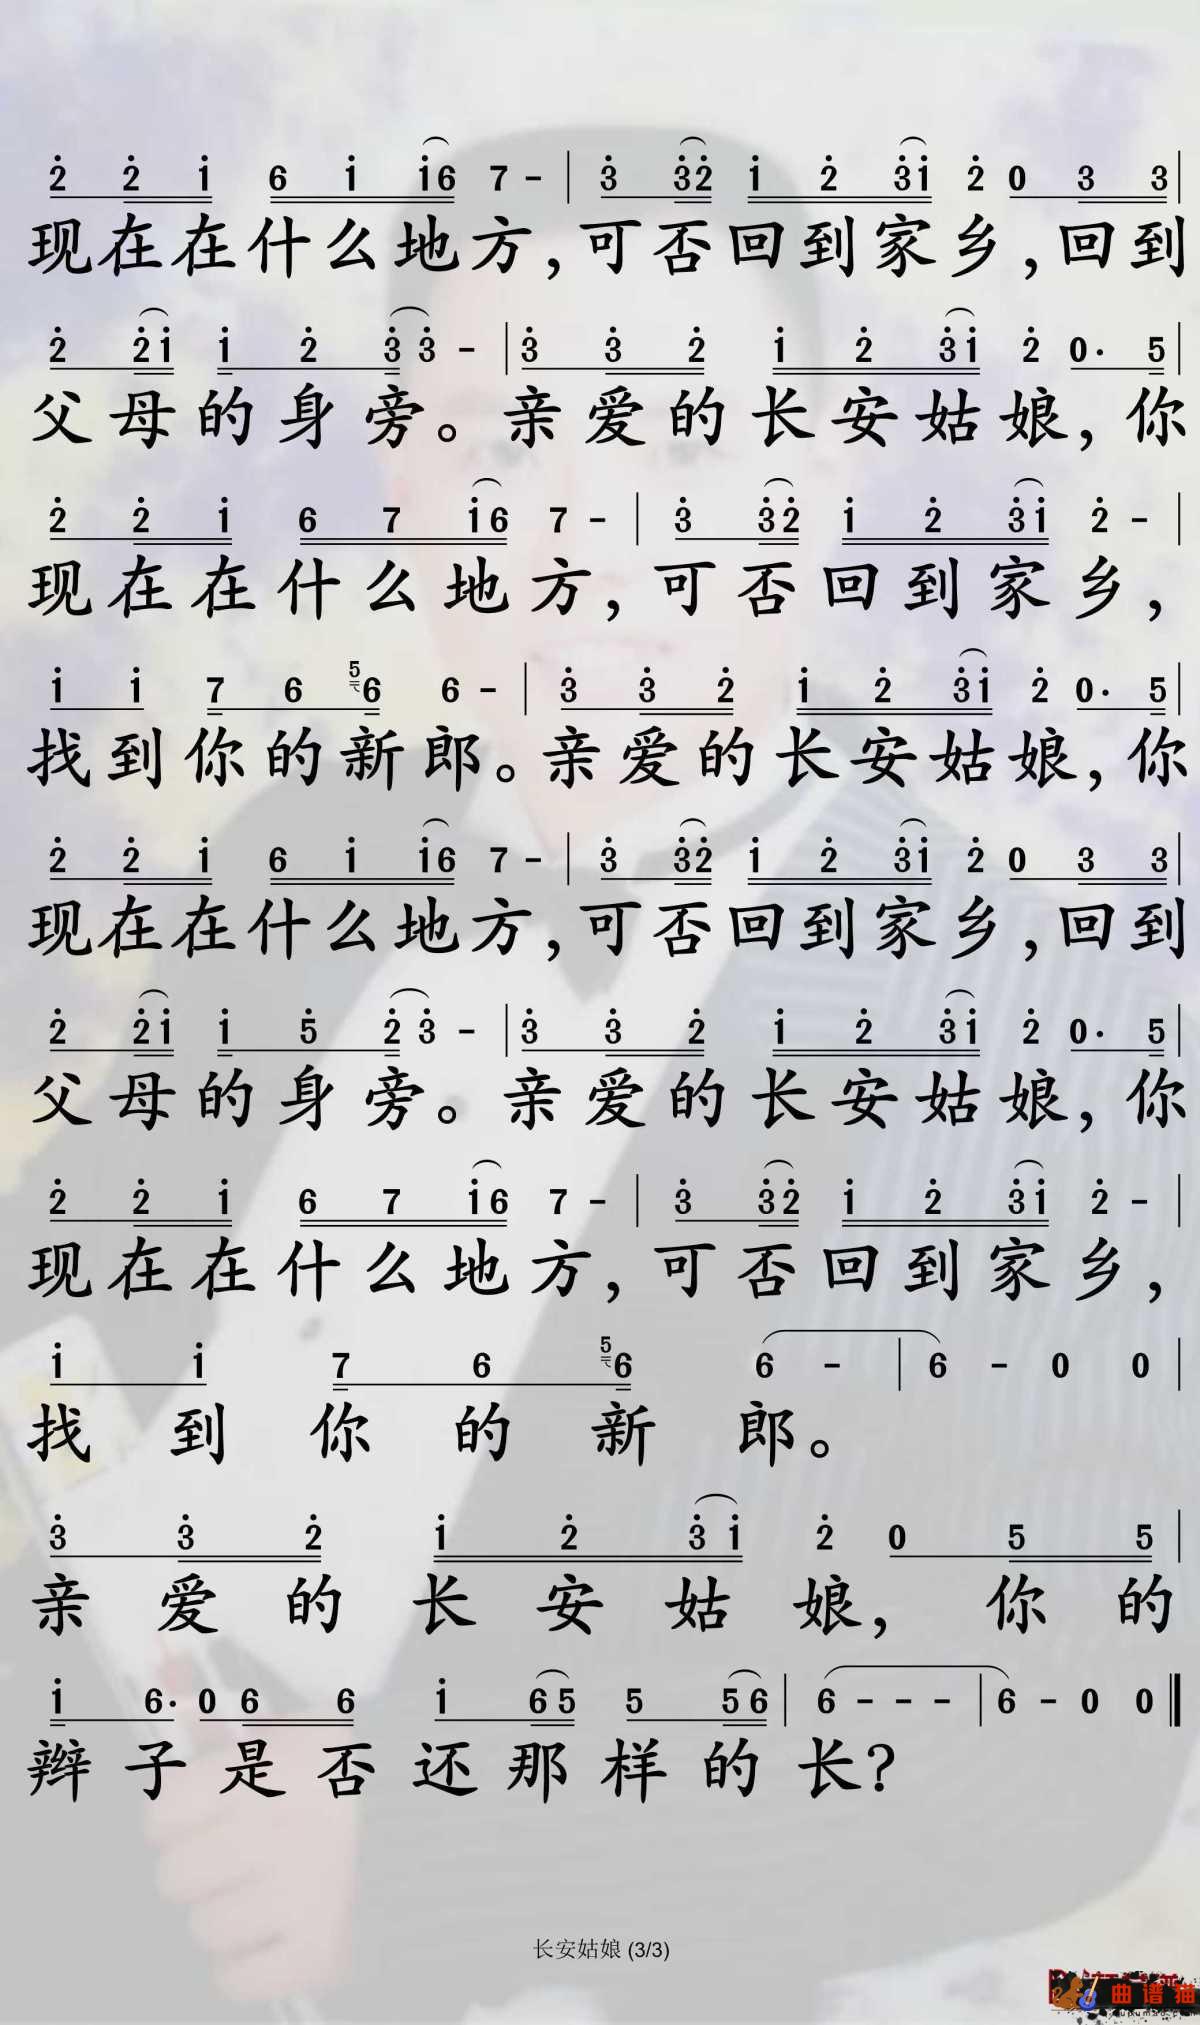 2 2 1 6 1 1 6 7 - | 3 3 2 1 2 3 1 2 0 3 3 |
现在在什么地方,可否回到家乡,回到
2 2 1 1 2 3 3 - | 3 3 2 1 2 3 1 2 0· 5 |
父母的身旁。亲爱的长安姑娘,你
2 2 1 6 7 1 6 7 - | 3 3 2 1 2 3 1 2 - |
现在在什么地方,可否回到家乡,
1 1 7 6 5 6 6 - | 3 3 2 1 2 3 1 2 0· 5 |
找到你的新郎。亲爱的长安姑娘,你
2 2 1 6 1 1 6 7 - | 3 3 2 1 2 3 1 2 0 3 3 |
现在在什么地方,可否回到家乡,回到
2 2 1 1 5 2 3 - | 3 3 2 1 2 3 1 2 0· 5 |
父母的身旁。亲爱的长安姑娘,你
2 2 1 6 7 1 6 7 - | 3 3 2 1 2 3 1 2 - |
现在在什么地方,可否回到家乡,
1 1 7 6 5 6 6 - | 6 - 0 0 |
找到你的新郎。
3 3 2 1 2 3 1 2 0 5 5 |
亲爱的长安姑娘,你的
1 6· 0 6 6 1 6 5 5 5 6 | 6 - - - | 6 - 0 0 ‖
辫子是否还那样的长?
长安姑娘 (3/3)
曲谱猫